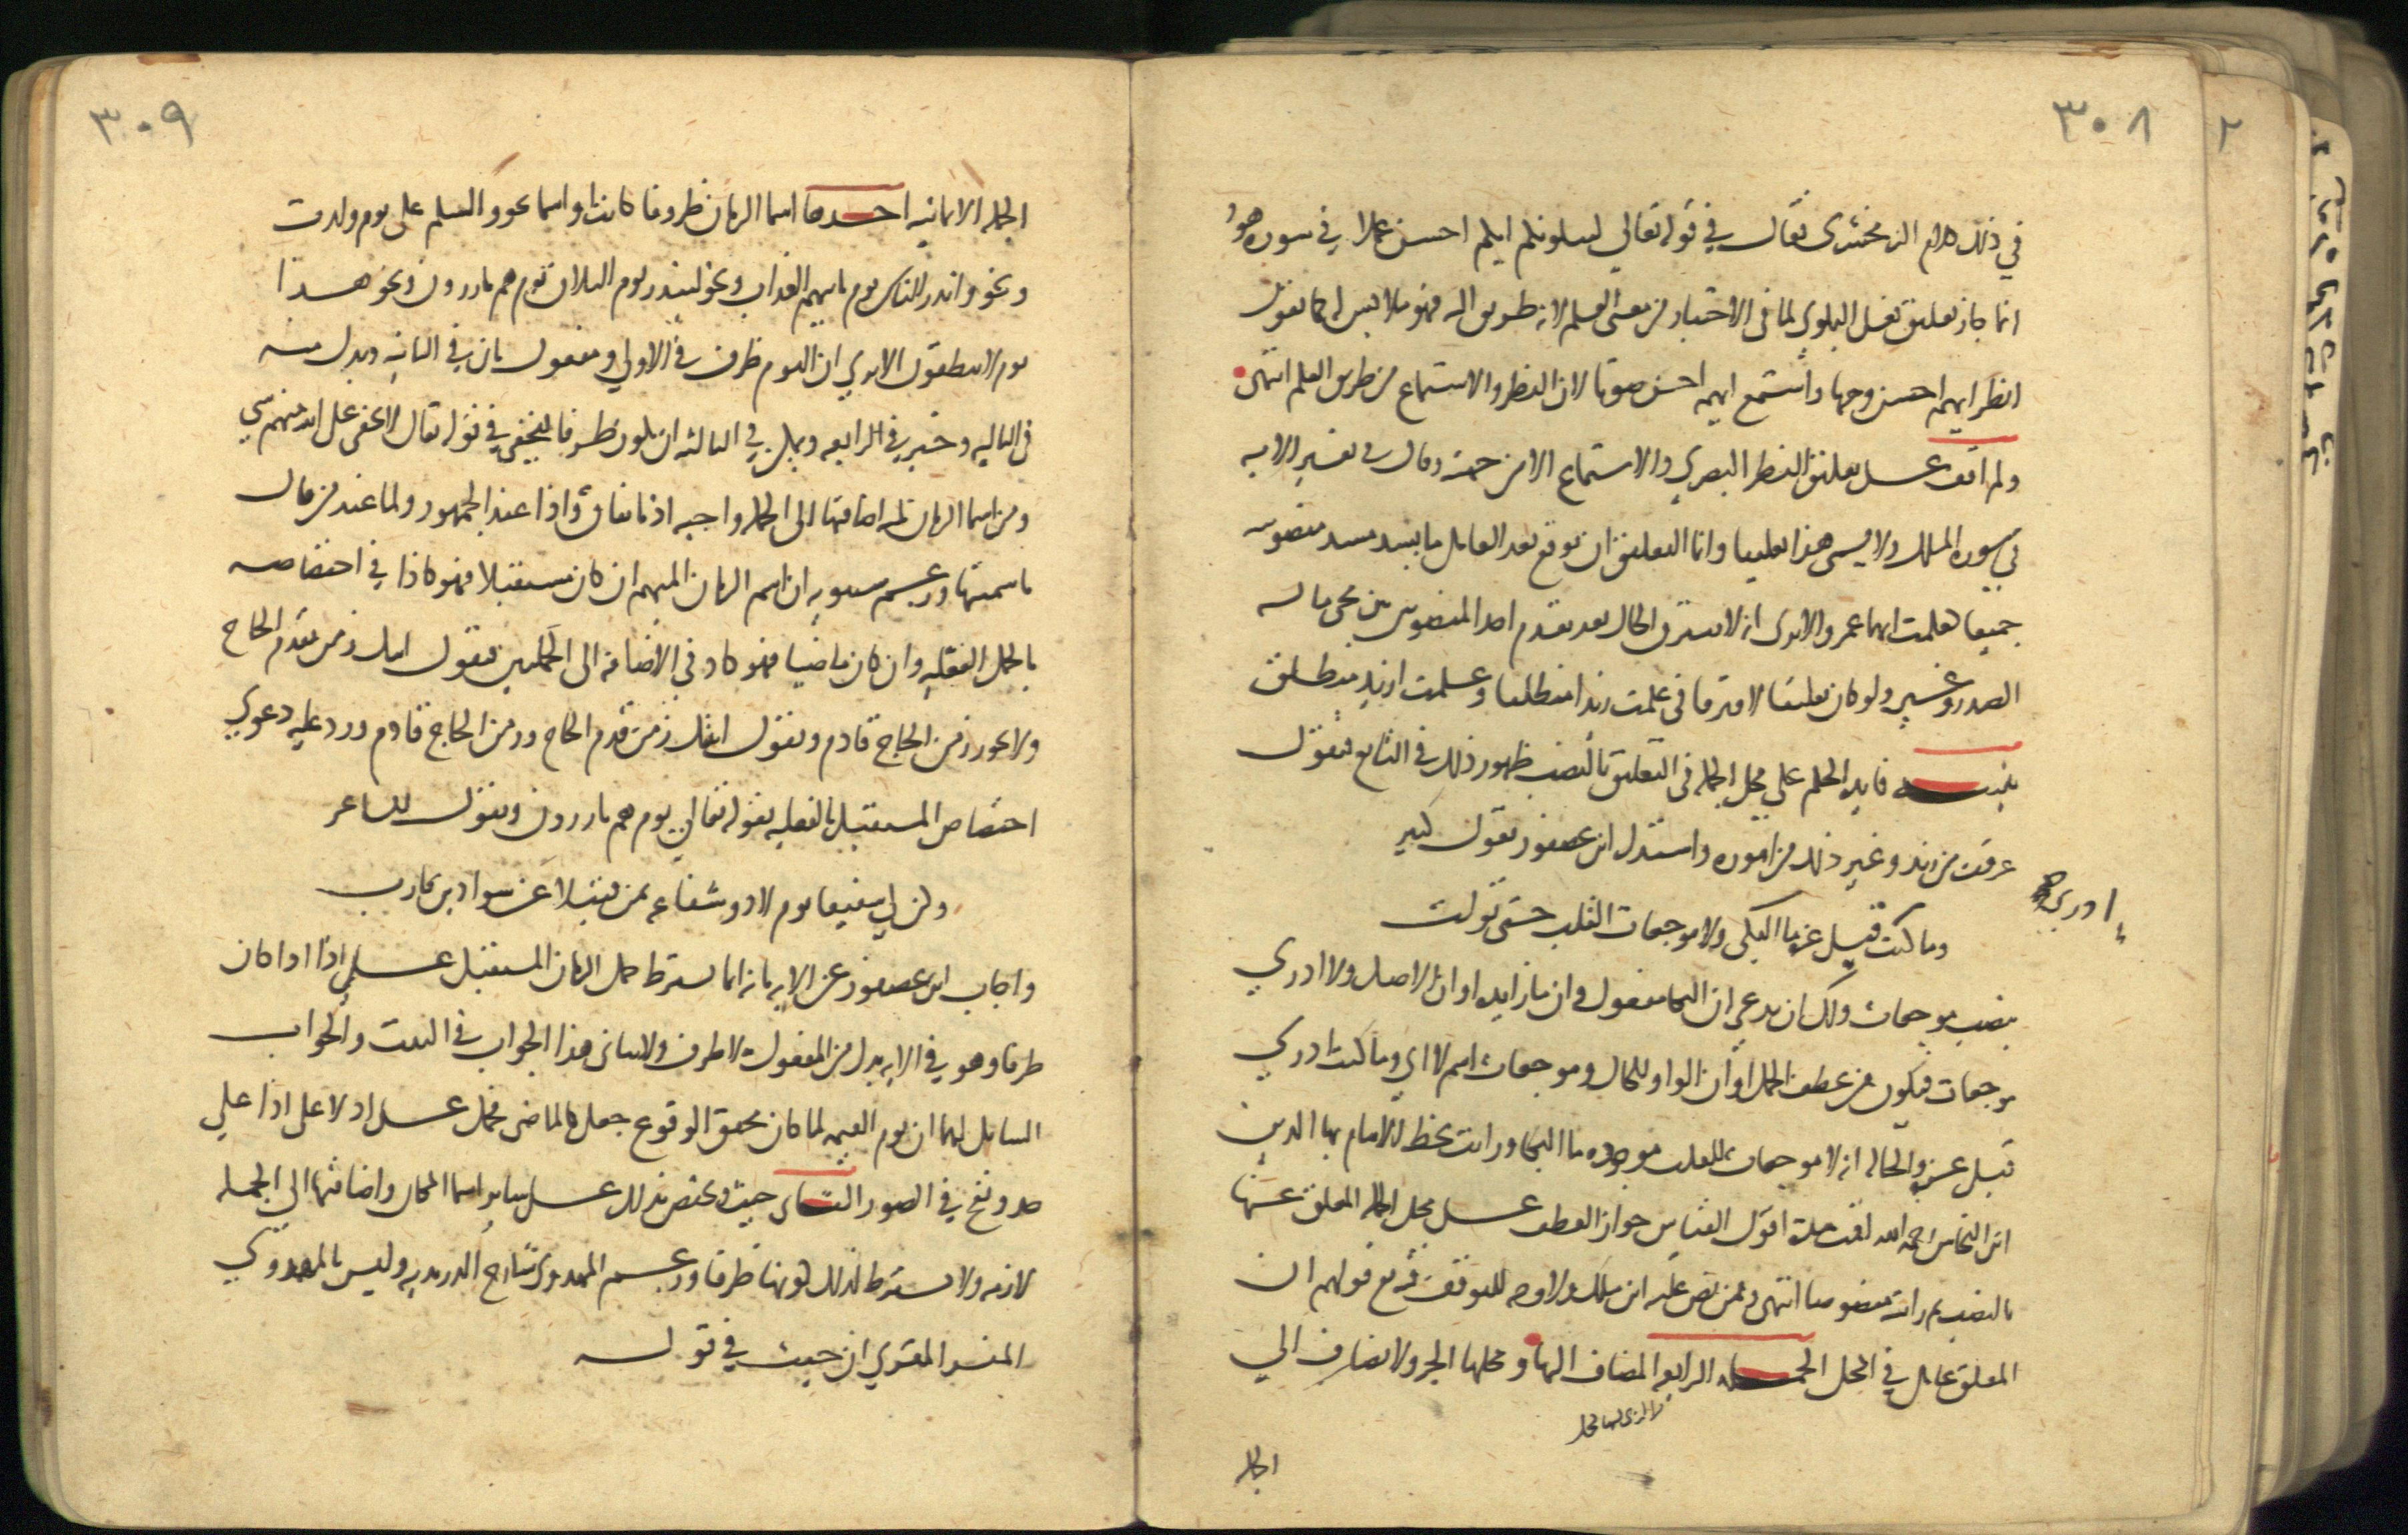 ٣٠٨
في ذلك كلام الزمخشري فقال في قوله تعالى ليبلوكم ايكم احسن عملا في سورة هود
انما جاز تعليق فعل البلوى لما في الاختبار من معنى العلم لانه طريق اليه فهو ملابس له كما تقول
انظر ايهم احسن وجها واستمع ايهم احسن صوتا لان النظر والاستماع من طرق العلم انتهى
ولم اقف على تعليق النظر البصري والاستماع الا من جهته وقال في تفسير الاية
في سورة الملك ولا يسمى هذا تعليقا وانما التعليق ان توقع بعد العامل ما يسد مسد منصوبيه
جميعا كعلمت ايهما عمرو الا ترى انه لا يفترق الحال بعد تقدم احد المنصوبين بين مجي ما له
الصدر وغيره ولو كان تعليقا لافترقا في علمت زيدا منطلقا وعلمت ازيد منطلق
تنبيه فايدة الحكم على محل الجملة في التعليق بالنصب ظهور ذلك في التابع فتقول
عرفت من زيد وغير ذلك من اموره واستدل ابن عصفور بقول كثير
وما كنت ادري قبل عزة ما البكى ولا موجعات القلب حتى تولت
بنصب موجعات ولك ان تدعي ان البكا مفعول وان ما زايدة او ان الاصل ولا ادري
موجعات فيكون من عطف الجمل او ان الواو للحال وموجعات اسم لا اي وما كنت ادري
قبل عزة والحالة انه لا موجعات للقلب موجودة ما البكا ورايت بخط الامام بها الدين
ابن النحاس رحمه الله اقمت مدة اقول القياس جواز العطف على محل الجملة المعلق عنها
بالنصب ثم رايته منصوصا انتهى وممن نص عليه ابن ملك ولا وجه للتوقف فيه مع قولهم ان
المعلق عامل في المحل الجملة الرابعة المضاف اليها ومحلها الجر ولا يضاف الى
الجملة
٣٠٩
الجملة الا ثمانية احدها اسما الزمان ظروفا كانت او اسما نحو والسلم على يوم ولدت
ونحو وانذر الناس يوم ياتيهم العذاب ونحو لينذر يوم التلاق يوم هم بارزون ونحو هذا
يوم لا ينطقون الا ترى ان اليوم ظرف في الاولى ومفعول ثان في الثانية وبدل منه
في الثالثة وخبر في الرابعة ويمكن في الثالثة ان يكون ظرفا ليخفى في قوله تعالى لا يخفى على الله منهم شي
ومن اسما الزمان ثلثة اضافتها الى الجملة واجبة اذ باتفاق واذا عند الجمهور ولما عند من قال
باسميتها وزعم سيبويه ان اسم الزمان المبهم ان كان مستقبلا فهو كاذا في اختصاصه
بالجمل الفعلية وان كان ماضيا فهو كاذ في الاضافة الى الجملتين فتقول اتيك زمن يقدم الحاج
ولا يجوز زمن الحاج قادم وتقول اتيتك زمن قدم الحاج وزمن الحاج قادم ورد عليه دعوى
اختصاص المستقبل بالفعلية بقوله تعالى يوم هم بارزون وبقول الشاعر
وكن لي شفيعا يوم لا ذو شفاعة بمغن فتيلا عن سواد بن قارب
واجاب ابن عصفور عن الاية بانه انما يشترط حمل الزمان المستقبل على اذا اذا كان
ظرفا وهو في الاية بدل من المفعول لا ظرف ولا يتاتى هذا الجواب في البيت والجواب
الشامل لهما ان يوم القيمة لما كان محقق الوقوع جعل كالماضي فحمل على اذ لا على اذا على
حد ونفخ في الصور الثاني حيث وتختص بذلك على ساير اسما المكان واضافتها الى الجملة
لازمة ولا يشترط لذلك كونها ظرفا وزعم المهدوي شارح الدريدية وليس بالمهدوي
المفسر المقري ان حيث في قوله